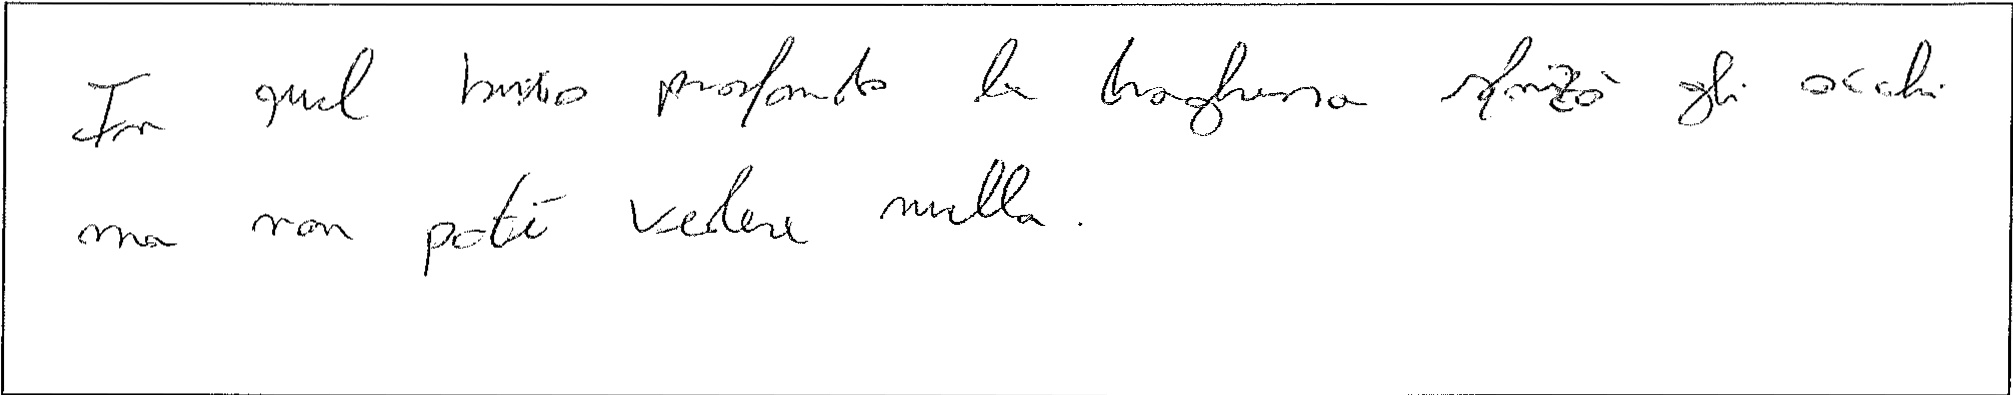 In quel buio profondo la traghema sfrizò gli occhi
ma non poté vedere nulla.